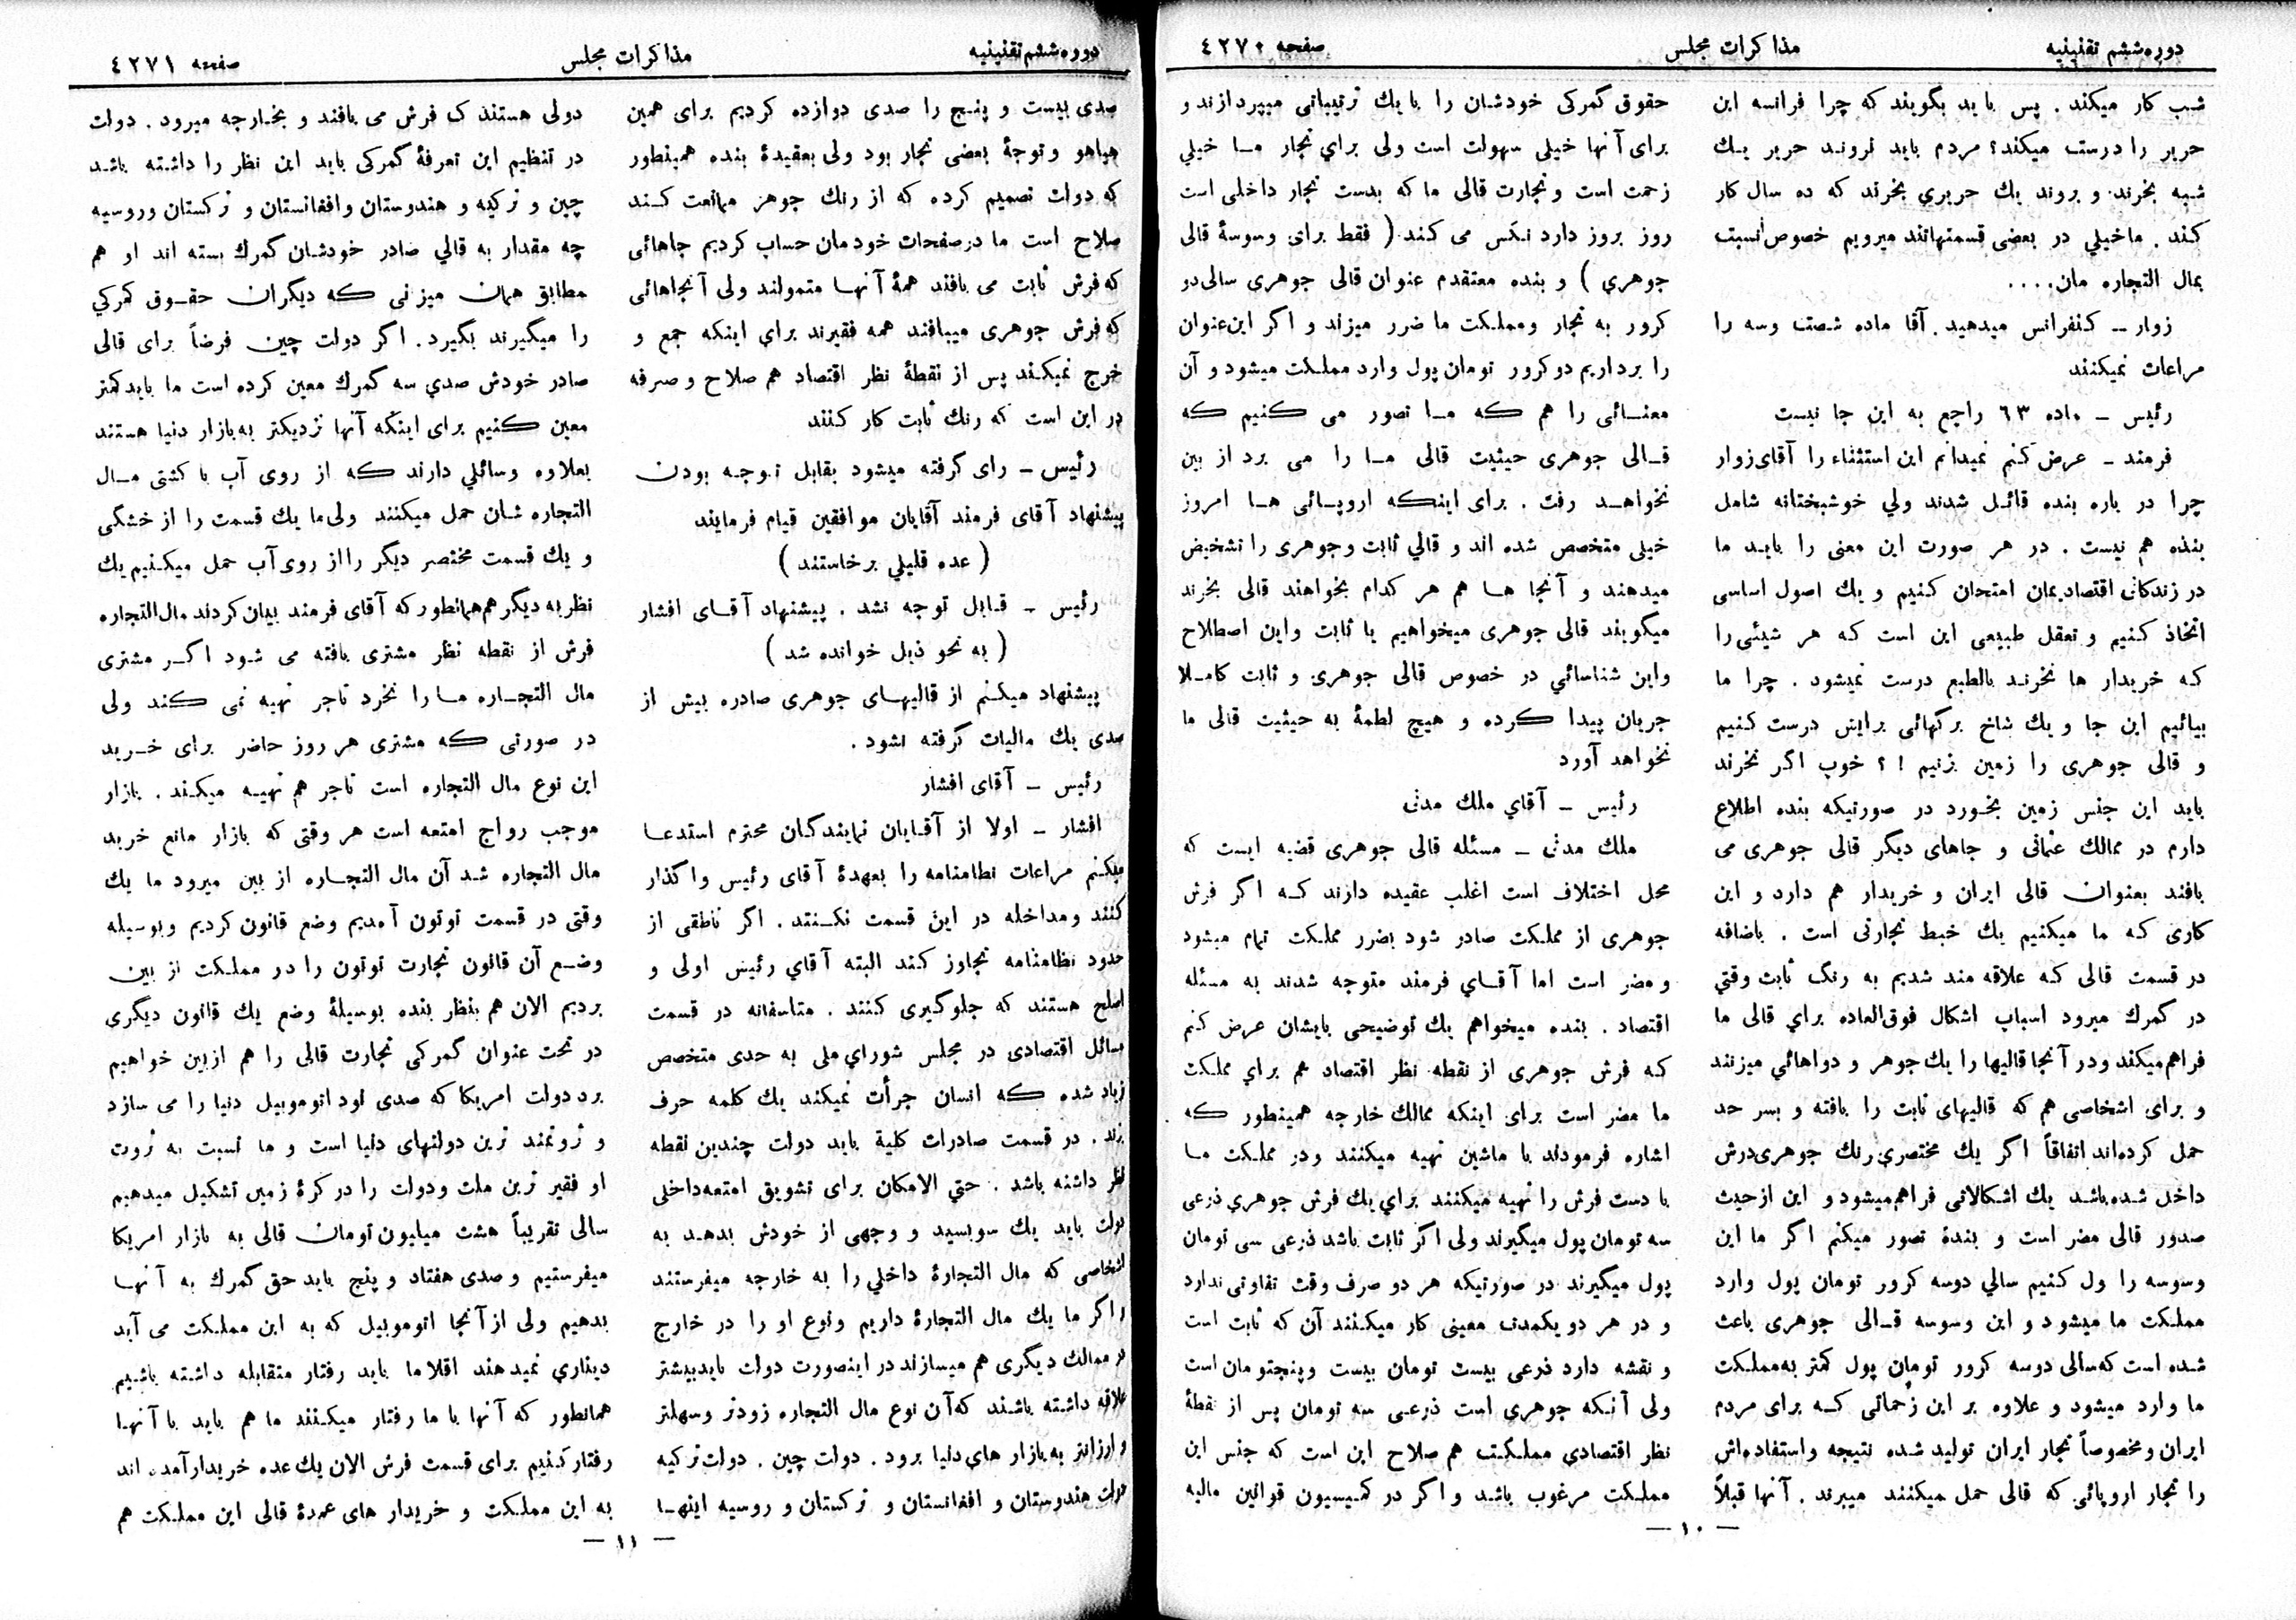 دوره ششم تقنینیه
مذاکرات مجلس
صفحه ٤٢٧٠
شب کار میکند . پس باید بگویند که چرا فرانسه این
حریر را درست میکند؟ مردم باید نروند حریر یك
شبه بخرند و بروند یك حریری بخرند که ده سال کار
کند . ما خیلي در بعضی قسمتها تند میرویم خصوص نسبت
بمال التجاره مان....
زوار ــ کنفرانس میدهید . آقا ماده شصت وسه را
مراعات نمیکنند
رئیس ــ ماده ٦٣ راجع به این جا نیست
فرمند ــ عرض کنم نمیدانم این استثناء را آقای زوار
چرا در باره بنده قائل شدند ولي خوشبختانه شامل
بنده هم نیست . در هر صورت این معنی را باید ما
در زندکانی اقتصادیمان امتحان کنیم و یك اصول اساسی
اتخاذ کنیم و تعقل طبیعی این است که هر شیئی را
که خریدار ها نخرند بالطبع درست نمیشود . چرا ما
بیائیم این جا و یك شاخ برکهائی برایش درست کنیم
و قالی جوهری را زمین بزنیم ! ؟ خوب اگر نخرند
باید این جنس زمین بخورد در صورتیکه بنده اطلاع
دارم در ممالك عثمانی و جاهای دیگر قالی جوهری می
بافند بعنوان قالی ایران و خریدار هم دارد و این
کاری که ما میکنیم یك خبط تجارتی است . باضافه
در قسمت قالی که علاقه مند شدیم به رنگ ثابت وقتي
در گمرك میرود اسباب اشکال فوق‌العاده براي قالی ما
فراهم میکند ودر آنجا قالیها را یك جوهر و دواهائي میزنند
و برای اشخاصی هم که قالیهای ثابت را بافته و بسر حد
حمل کرده‌اند اتفاقاً اگر یك مختصری رنك جوهری درش
داخل شده باشد یك اشکالاتی فراهم میشود و این از حیث
صدور قالی مضر است و بندهٔ تصور میکنم اگر ما این
وسوسه را ول کنیم سالي دوسه کرور تومان پول وارد
مملکت ما میشود و این وسوسه قالی جوهری باعث
شده است که سالی دوسه کرور تومان پول کمتر به مملکت
ما وارد میشود و علاوه بر این زحماتی که برای مردم
ایران و مخصوصاً تجار ایران تولید شده نتیجه و استفاده‌اش
را تجار اروپائی که قالی حمل میکنند میبرند . آنها قبلاً
حقوق گمرکی خودشان را با یك ترتیباتی میپردازند و
برای آنها خیلی سهولت است ولی براي تجار ما خیلي
زحمت است و تجارت قالی ما که بدست تجار داخلی است
روز بروز دارد نکس می کند ( فقط برای وسوسهٔ قالی
جوهري ) و بنده معتقدم عنوان قالی جوهری سالی دو
کرور به تجار و مملکت ما ضرر میزند و اگر این عنوان
را برداریم دو کرور تومان پول وارد مملکت میشود و آن
معنائی را هم که ما تصور می کنیم که
قالی جوهری حیثیت قالی ما را می برد از بین
نخواهد رفت . برای اینکه اروپائی ها امروز
خیلی متخصص شده اند و قالي ثابت و جوهری را تشخیص
میدهند و آنجا ها هم هر کدام بخواهند قالی بخرند
میگویند قالی جوهری میخواهیم یا ثابت واین اصطلاح
واین شناسائي در خصوص قالی جوهری و ثابت کاملا
جریان پیدا کرده و هیچ لطمهٔ به حیثیت قالی ما
نخواهد آورد
رئیس ــ آقاي ملك مدنی
ملك مدنی ــ مسئله قالی جوهری قضیه ایست که
محل اختلاف است اغلب عقیده دارند که اگر فرش
جوهری از مملکت صادر شود بضرر مملکت تمام میشود
و مضر است اما آقاي فرمند متوجه شدند به مسئله
اقتصاد . بنده میخواهم یك توضیحی بایشان عرض کنم
که فرش جوهری از نقطه نظر اقتصاد هم براي مملکت
ما مضر است برای اینکه ممالك خارجه همینطور که
اشاره فرمودند با ماشین تهیه میکنند ودر مملکت ما
با دست فرش را تهیه میکنند براي یك فرش جوهري ذرعی
سه تومان پول میگیرند ولی اگر ثابت باشد ذرعی سی تومان
پول میگیرند در صورتیکه هر دو صرف وقت تفاوتی ندارد
و در هر دو یکمدت معینی کار میکنند آن که ثابت است
و نقشه دارد ذرعی بیست تومان بیست و پنجتومان است
ولی آنکه جوهری است ذرعی سه تومان پس از نقطهٔ
نظر اقتصادي مملکت هم صلاح این است که جنس این
مملکت مرغوب باشد و اگر در کمیسیون قوانین مالیه
— ١٠ —
دوره ششم تقنینیه
مذاکرات مجلس
صفحه ٤٢٧١
صدی بیست و پنج را صدی دوازده کردیم برای همین
هیاهو و توجهٔ بعضی تجار بود ولی بعقیدهٔ بنده همینطور
که دولت تصمیم کرده که از رنك جوهر ممانعت کند
صلاح است ما در صفحات خودمان حساب کردیم جاهائی
که فرش ثابت می بافند همهٔ آنها متمولند ولی آنجاهائی
که فرش جوهری میبافند همه فقیرند براي اینکه جمع و
خرج نمیکند پس از نقطهٔ نظر اقتصاد هم صلاح و صرفه
در این است که رنك ثابت کار کنند
رئیس ــ رای گرفته میشود بقابل توجه بودن
پیشنهاد آقای فرمند آقایان موافقین قیام فرمایند
( عده قلیلي برخاستند )
رئیس ــ قابل توجه نشد . پیشنهاد آقای افشار
( به نحو ذیل خوانده شد )
پیشنهاد میکنم از قالیهای جوهری صادره بیش از
صدی یك مالیات گرفته نشود .
رئیس ــ آقای افشار
افشار ــ اولا از آقایان نمایندگان محترم استدعا
میکنم مراعات نظامنامه را بعهدهٔ آقای رئیس واگذار
کنند و مداخله در این قسمت نکنند . اگر ناطقی از
حدود نظامنامه تجاوز کند البته آقاي رئیس اولی و
اصلح هستند که جلوگیری کنند . متاسفانه در قسمت
مسائل اقتصادی در مجلس شوراي ملی به حدی متخصص
زیاد شده که انسان جرأت نمیکند یك کلمه حرف
بزند . در قسمت صادرات کلیة باید دولت چندین نقطه
نظر داشته باشد . حتي الامکان برای تشویق امتعه داخلی
دولت باید یك سوبسید و وجهی از خودش بدهد به
اشخاصی که مال التجارهٔ داخلي را به خارجه میفرستند
و اگر ما یك مال التجارهٔ داریم ونوع او را در خارج
در ممالك دیگری هم میسازند در اینصورت دولت باید بیشتر
علاقه داشته باشند که آن نوع مال التجاره زودتر وسهلتر
و ارزانتر به بازار های دنیا برود . دولت چین . دولت ترکیه
دولت هندوستان و افغانستان و ترکستان و روسیه اینها
دولی هستند ک فرش می بافند و بخارجه میرود . دولت
در تنظیم این تعرفهٔ گمرکی باید این نظر را داشته باشد
چین و ترکیه و هندوستان وافغانستان و ترکستان وروسیه
چه مقدار به قالي صادر خودشان گمرك بسته اند او هم
مطابق همان میزنی که دیگران حقوق گمرکي
را میگیرند بگیرد . اگر دولت چین فرضاً برای قالی
صادر خودش صدي سه گمرك معین کرده است ما باید کمتر
معین کنیم برای اینکه آنها نزدیکتر به بازار دنیا هستند
بعلاوه وسائلي دارند که از روی آب با کشتی مال
التجاره شان حمل میکنند ولی ما یك قسمت را از خشکی
و یك قسمت مختصر دیگر را از روی آب حمل میکنیم یك
نظر به دیگر هم همانطور که آقای فرمند بیان کردند مال التجاره
فرش از نقطه نظر مشتری بافته می شود اگر مشتری
مال التجاره ما را نخرد تاجر تهیه نمی کند ولی
در صورتی که مشتری هر روز حاضر برای خرید
این نوع مال التجاره است تاجر هم تهیه میکند . بازار
موجب رواج امتعه است هر وقتی که بازار مانع خرید
مال التجاره شد آن مال التجاره از بین میرود ما یك
وقتی در قسمت توتون آمدیم وضع قانون کردیم وبوسیله
وضع آن قانون تجارت توتون را در مملکت از بین
بردیم الان هم بنظر بنده بوسیلهٔ وضع یك قانون دیگری
در تحت عنوان گمرکی تجارت قالی را هم از بین خواهیم
برد دولت امریکا که صدی نود اتوموبیل دنیا را می سازد
و ثروتمند ترین دولتهای دنیا است و ما نسبت به ثروت
او فقیر ترین ملت و دولت را در کرهٔ زمین تشکیل میدهیم
سالی تقریباً هشت میلیون تومان قالی به بازار امریکا
میفرستیم و صدی هفتاد و پنج باید حق گمرك به آنها
بدهیم ولی از آنجا اتوموبیل که به این مملکت می آید
دیناري نمیدهند اقلا ما باید رفتار متقابله داشته باشیم
همانطور که آنها با ما رفتار میکنند ما هم باید با آنها
رفتار کنیم برای قسمت فرش الان یك عده خریدار آمده اند
به این مملکت و خریدار های عمدهٔ قالی این مملکت هم
— ١١ —